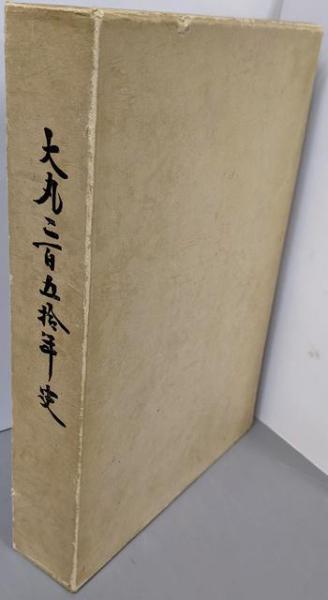 大丸二百五拾年史